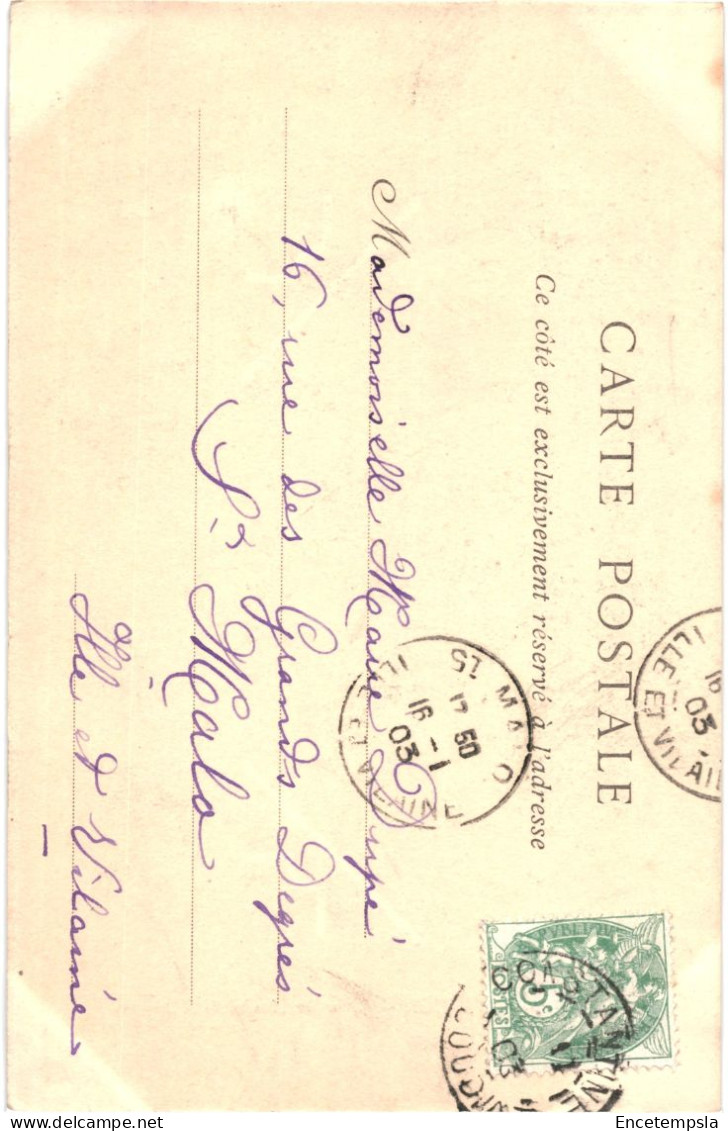 CARTE POSTALE
Ce côté est exclusivement réservé à l'adresse
Mademoiselle Marie Dupé
16, rue des Grands Degrés
St Malo
Ille et Vilaine
ST MALO
17 50
16 - 1
03
ILLE ET VILAINE
16
03
ILLE ET VILAINE
5c
POSTES
CONSTANTINE
03
Encetempsla
delcampe.net